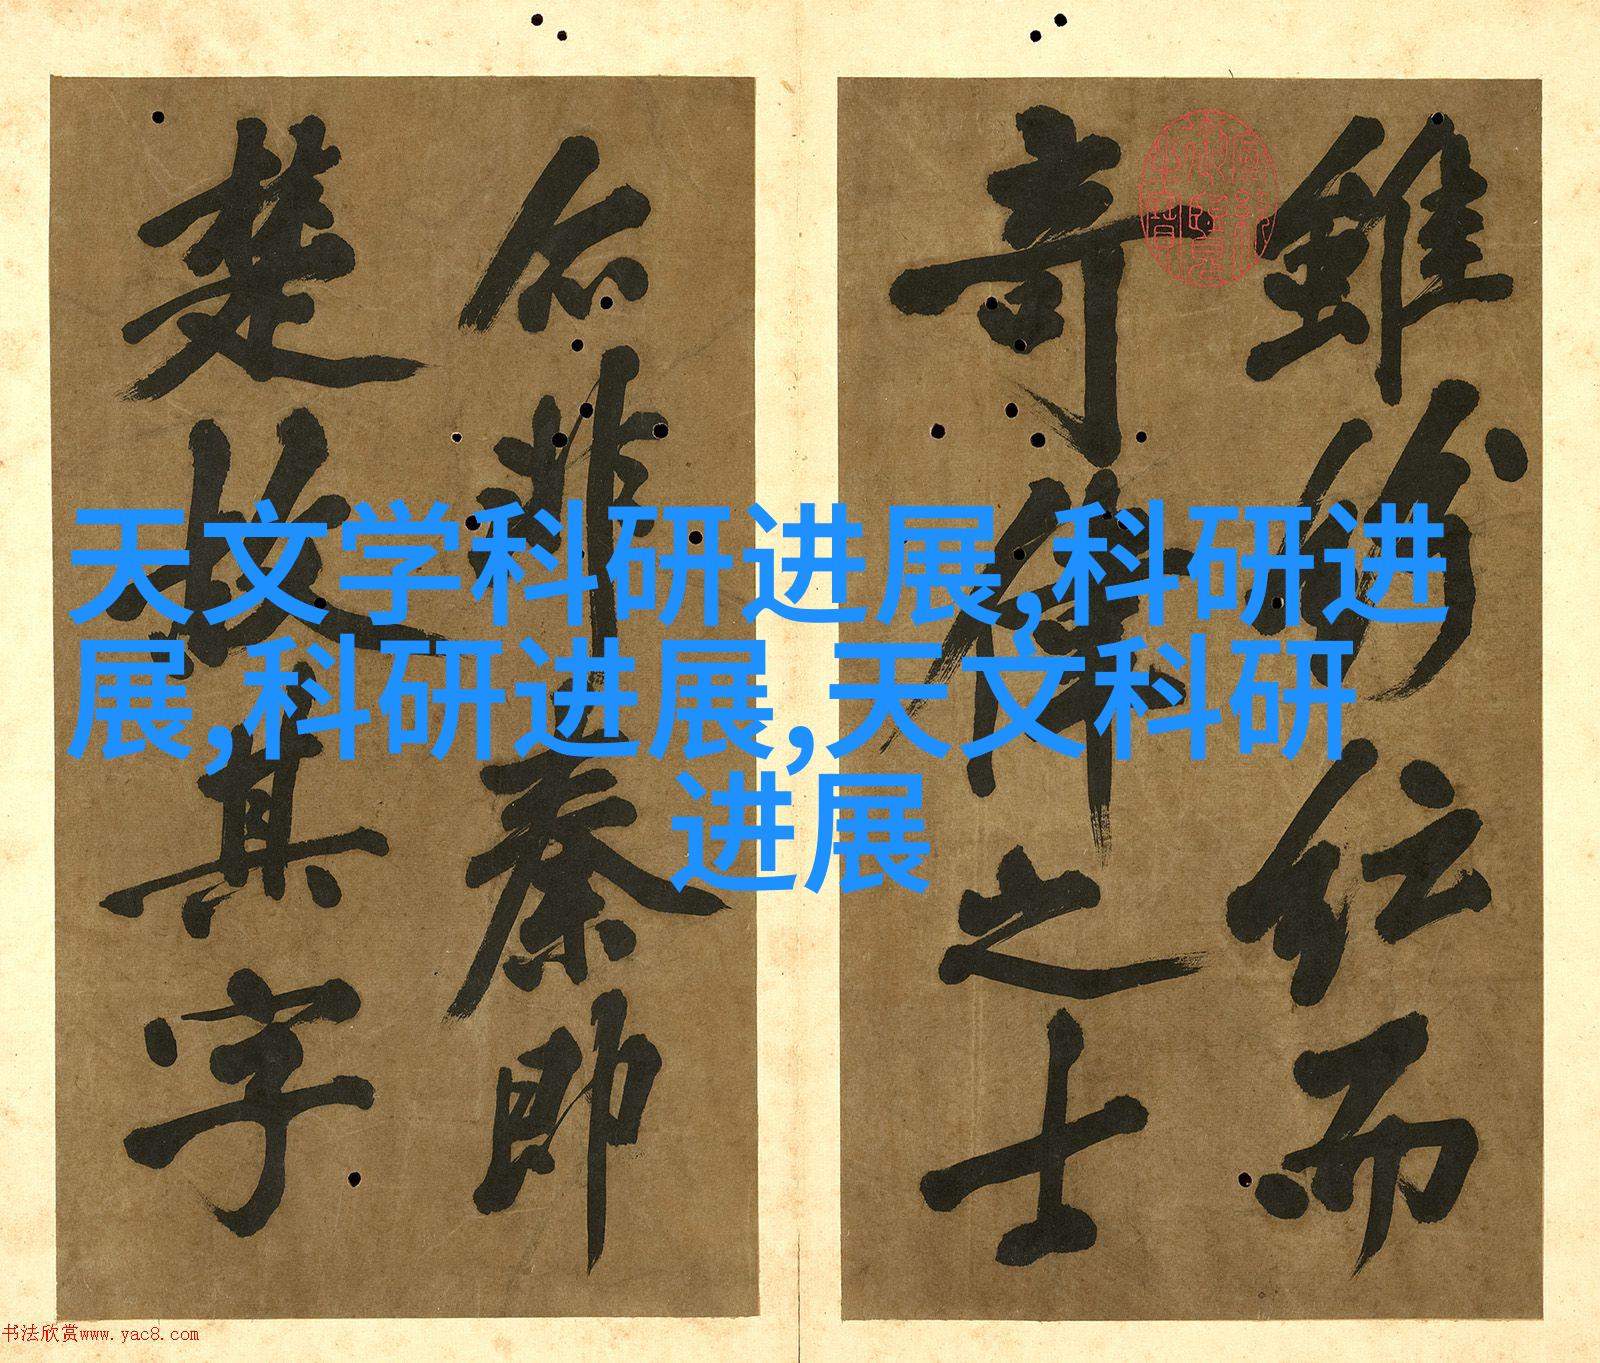 天文学科研进展,科研进
展,科研进展,天文科研
进展
雖而
奇偉之士
非秦即
楚故其字
书法欣赏www.yac8.com